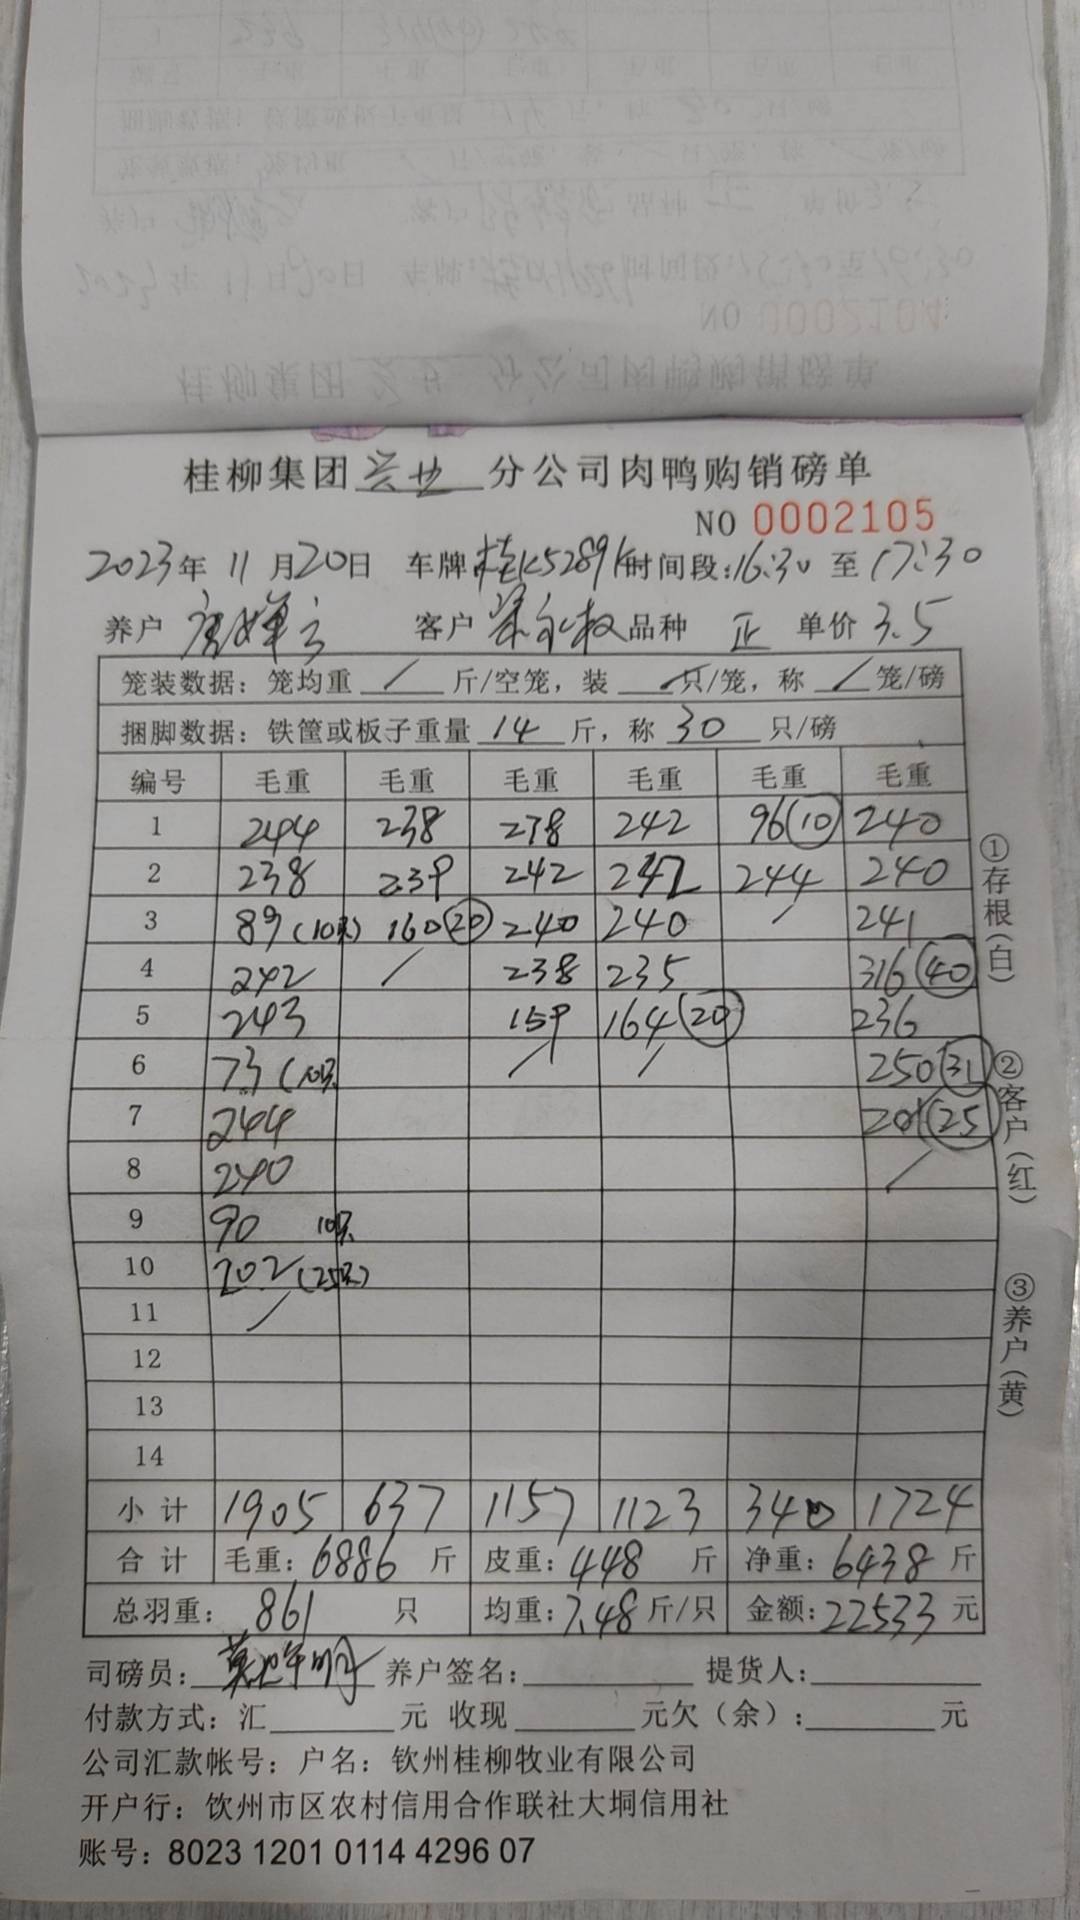 桂柳集团兴业分公司肉鸭购销磅单
NO 0002105
2023年11月20日 车牌桂K5289K时间段:16:30至17:30
养户 唐婵云 客户 梁永权 品种 正 单价 3.5
笼装数据：笼均重 / 斤/空笼，装 / 只/笼，称 / 笼/磅
捆脚数据：铁筐或板子重量 14 斤，称 30 只/磅
编号 毛重 毛重 毛重 毛重 毛重 毛重
1 244 238 238 242 96(10) 240
2 238 239 242 242 244 240
3 89(10只) 160(20) 240 240 / 241
4 242 / 238 235 316(40)
5 243 159 164(20) 236
6 73(10只 / / 250(31)
7 244 201(25)
8 240 /
9 90 10只
10 202(25只)
11 /
12
13
14
小计 1905 637 1157 1123 340 1724
合计 毛重：6886 斤 皮重：448 斤 净重：6438 斤
总羽重：861 只 均重：7.48 斤/只 金额：22533 元
司磅员： 养户签名： 提货人：
付款方式：汇 元 收现 元欠（余）： 元
公司汇款帐号：户名：钦州桂柳牧业有限公司
开户行：钦州市区农村信用合作联社大垌信用社
账号：8023 1201 0114 4296 07
①存根(白)
②客户(红)
③养户(黄)
NO 0002104